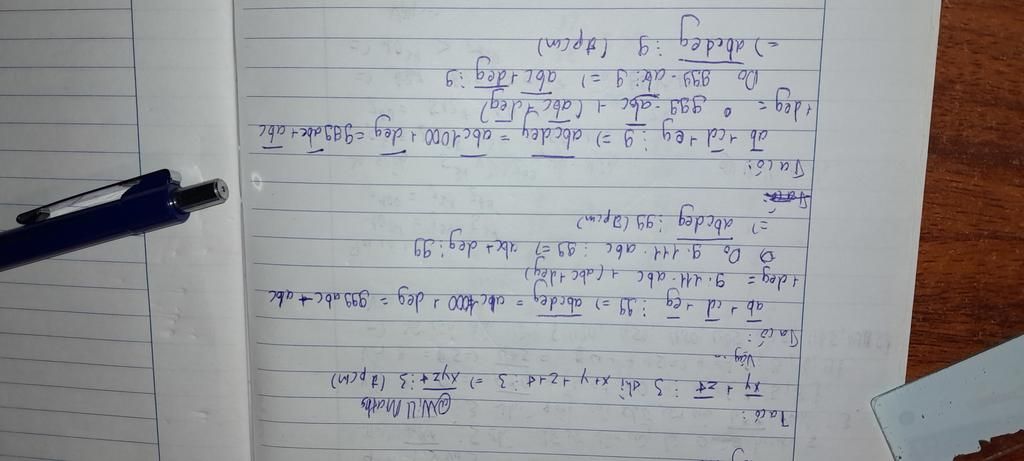 Ta có:
@W.U Maths
xy + zt ⋮ 3 khi x + y + z + t ⋮ 3 => xyzt ⋮ 3 (đpcm)
Vậy
Ta có:
ab + cd + eg ⋮ 99 => abcdeg = abc.1000 + deg = 999 abc + abc
+ deg = 9.111.abc + (abc + deg)
Do 9.111.abc ⋮ 99 => abc + deg ⋮ 99
=> abcdeg ⋮ 99 (đpcm)
Ta có:
ab + cd + eg ⋮ 9 => abcdeg = abc.1000 + deg = 999 abc + abc
+ deg = 999.abc + (abc + deg)
Do 999.abc ⋮ 9 => abc + deg ⋮ 9
=> abcdeg ⋮ 9 (đpcm)